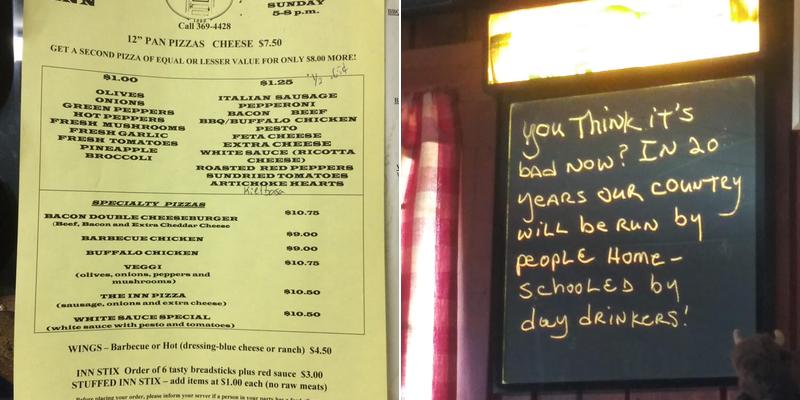 INN
1882
SUNDAY
5-8 p.m.
Call 369-4428
12" PAN PIZZAS CHEESE $7.50
GET A SECOND PIZZA OF EQUAL OR LESSER VALUE FOR ONLY $8.00 MORE!
$1.00
OLIVES
ONIONS
GREEN PEPPERS
HOT PEPPERS
FRESH MUSHROOMS
FRESH GARLIC
FRESH TOMATOES
PINEAPPLE
BROCCOLI
$1.25
ITALIAN SAUSAGE
PEPPERONI
BACON BEEF
BBQ/BUFFALO CHICKEN
PESTO
FETA CHEESE
EXTRA CHEESE
WHITE SAUCE (RICOTTA
CHEESE)
ROASTED RED PEPPERS
SUNDRIED TOMATOES
ARTICHOKE HEARTS
Kielbasa
SPECIALTY PIZZAS
BACON DOUBLE CHEESEBURGER $10.75
(Beef, Bacon and Extra Cheddar Cheese
BARBECUE CHICKEN $9.00
BUFFALO CHICKEN $9.00
VEGGI $10.75
(olives, onions, peppers and
mushrooms)
THE INN PIZZA $10.50
(sausage, onions and extra cheese)
WHITE SAUCE SPECIAL $10.50
(white sauce with pesto and tomatoes)
WINGS – Barbecue or Hot (dressing-blue cheese or ranch) $4.50
INN STIX Order of 6 tasty breadsticks plus red sauce $3.00
STUFFED INN STIX – add items at $1.00 each (no raw meats)
Before placing your order, please inform your server if a person in your party has a
you Think it's
bad now? In 20
years our country
will be run by
people Home-
schooled by
day drinkers!